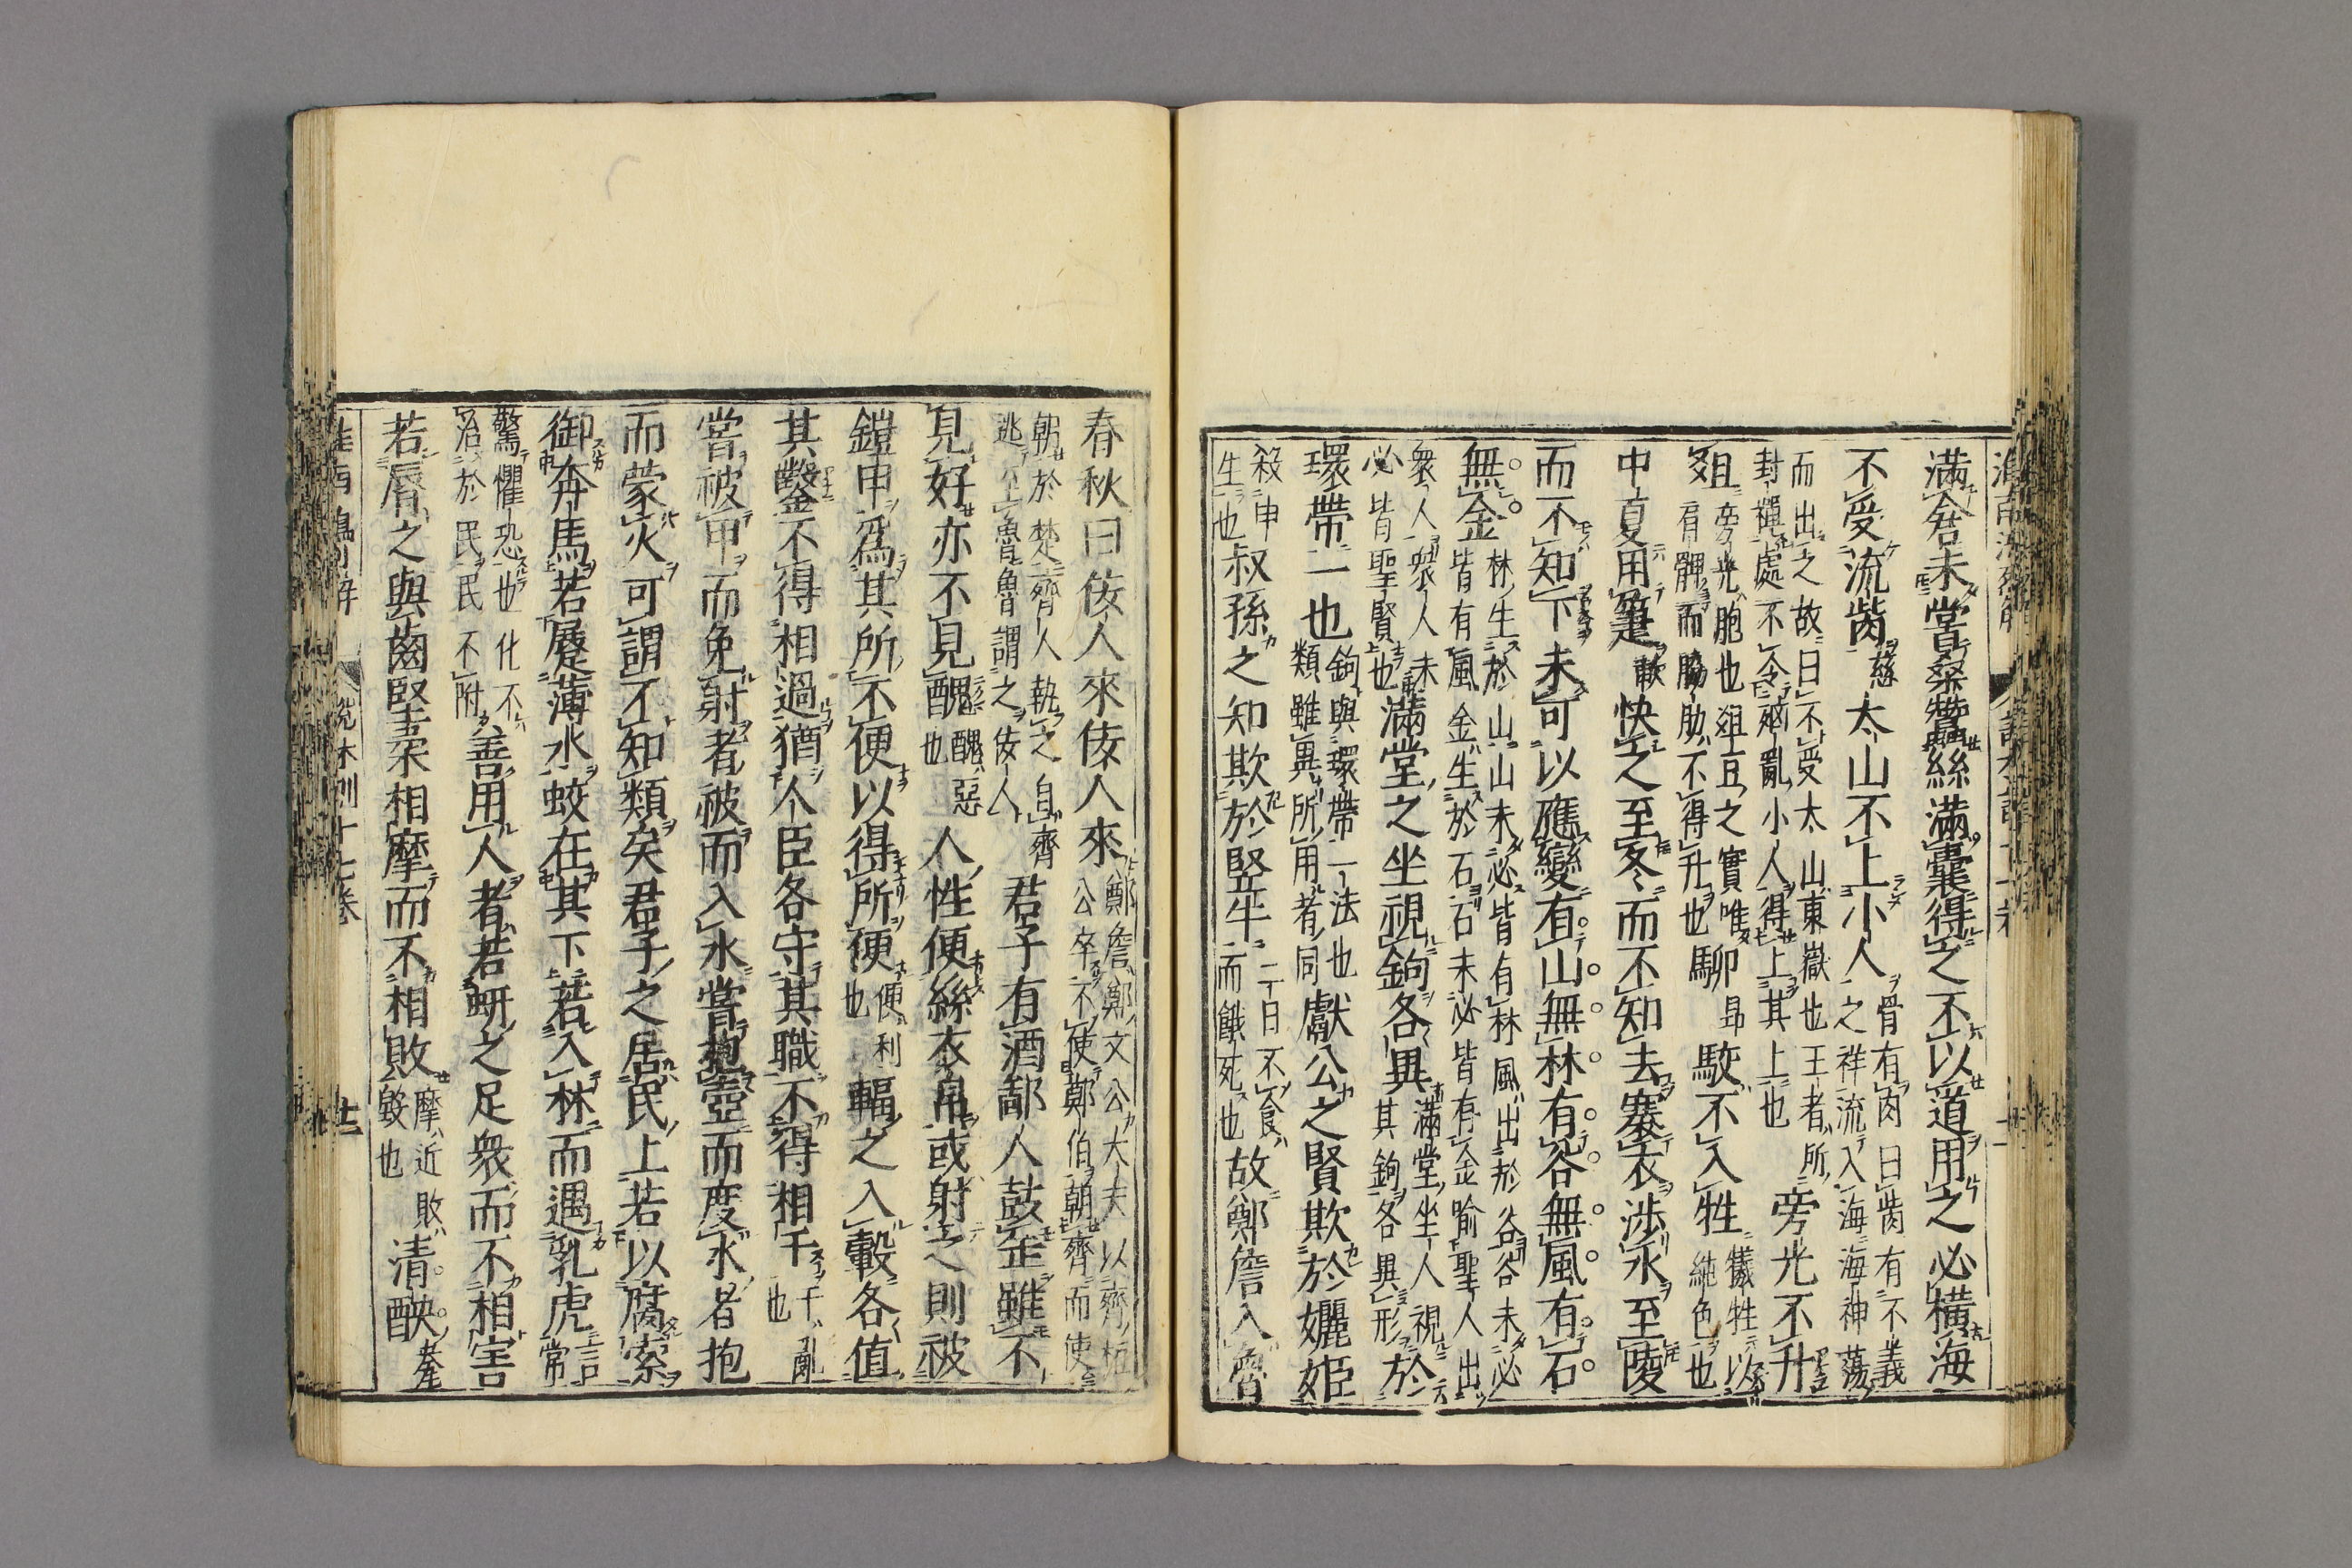 滿倉未嘗桑蠶絲滿囊得之不以道用之必橫海
不受流胔慈太山不上小人骨有肉曰胔有不義
之祥流入海海神蕩
而出之故曰不受太山東嶽也王者所
封禪處不令凶亂小人得上其上也旁光不升
俎旁光胞也俎豆之實唯
肩髀而脇肋不得升也騮昴駮不入牲犧牲以
純色也
中夏用箑歃快之至冬而不知去褰衣涉水至陵
而不知下未可以應變有山無林有谷無風有石
無金林生於山山未必皆有林風出於谷谷未必
皆有風金生於石石未必皆有金喻聖人出
衆人衆人未
必皆聖賢也滿堂之坐視鉤各異滿堂坐人視
其鉤各異形於
環帶一也鉤與環帶一法也
類雖異所用者同獻公之賢欺於孋姬
殺申
生也叔孫之知欺於豎牛三日不食
而餓死也故鄭詹入魯
春秋曰佞人來佞人來鄭詹鄭文公大夫以齊桓
公卒不使鄭伯朝齊而使
朝於楚齊人執之自齊
逃至魯魯謂之佞人君子有酒鄙人鼓缶雖不
見好亦不見醜醜惡
也人性便絲衣帛或射之則被
鎧甲爲其所不便以得所便便利
也輻之入轂各值
其鑿不得相過猶人臣各守其職不得相干干亂
也
嘗被甲而免射者被而入水嘗抱壺而度水者抱
而蒙火可謂不知類矣君子之居民上若以腐索
御奔馬若蹍薄氷蛟在其下若入林而遇乳虎言
常
驚懼恐也化不
洽於民民不附善用人者若蚈之足衆而不相害
若脣之與齒堅柔相摩而不相敗摩近敗
毀也清醠
說林訓十七卷
十二